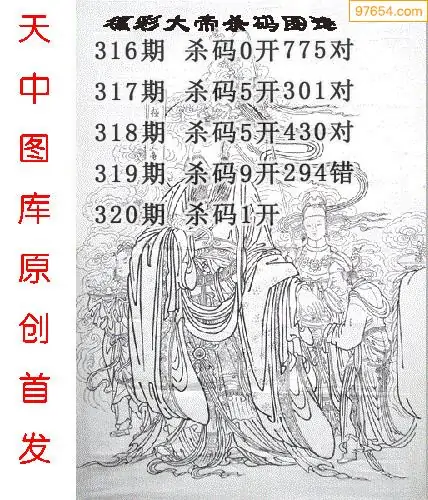 97654.com
福彩大帝杀码图迷
316期 杀码0开775对
317期 杀码5开301对
318期 杀码5开430对
319期 杀码9开294错
320期 杀码1开
天中图库原创首发